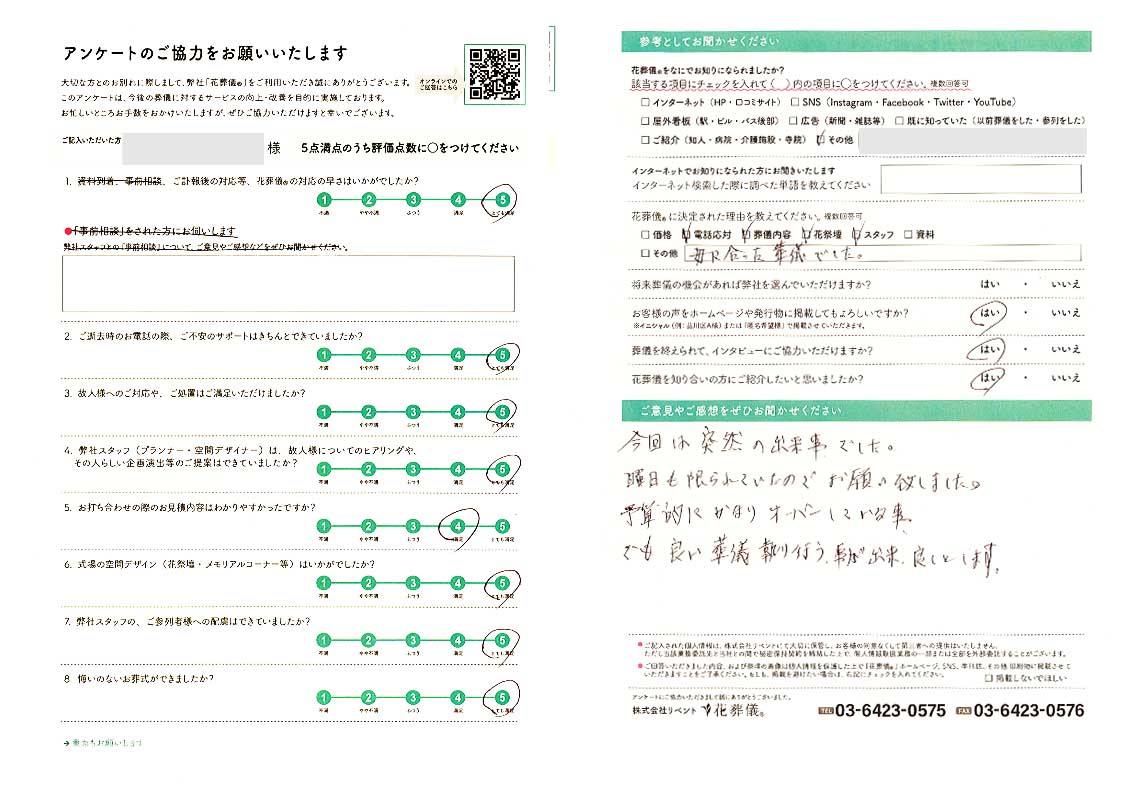 アンケートのご協力をお願いいたします
大切な方とのお別れに際しまして、弊社「花葬儀®」をご利用いただき誠にありがとうございます。
このアンケートは、今後の葬儀に対するサービスの向上・改善を目的に実施しております。
お忙しいところお手数をおかけいたしますが、ぜひご協力いただけますと幸いでございます。
オンラインでの
ご回答はこちら
ご記入いただいた方 様 5点満点のうち評価点数に○をつけてください
1. 資料到着、事前相談、ご訃報後の対応等、花葬儀®の対応の早さはいかがでしたか?
1 2 3 4 5
不満 やや不満 ふつう 満足 とても満足
●「事前相談」をされた方にお伺いします
弊社スタッフとの「事前相談」について、ご意見やご感想などをぜひお聞かせください。
2. ご逝去時のお電話の際、ご不安のサポートはきちんとできていましたか?
1 2 3 4 5
不満 やや不満 ふつう 満足 とても満足
3. 故人様へのご対応や、ご処置はご満足いただけましたか?
1 2 3 4 5
不満 やや不満 ふつう 満足 とても満足
4. 弊社スタッフ(プランナー・空間デザイナー)は、故人様についてのヒアリングや、
その人らしい企画演出等のご提案はできていましたか?
1 2 3 4 5
不満 やや不満 ふつう 満足 とても満足
5. お打ち合わせの際のお見積内容はわかりやすかったですか?
1 2 3 4 5
不満 やや不満 ふつう 満足 とても満足
6. 式場の空間デザイン(花祭壇・メモリアルコーナー等)はいかがでしたか?
1 2 3 4 5
不満 やや不満 ふつう 満足 とても満足
7. 弊社スタッフの、ご参列者様への配慮はできていましたか?
1 2 3 4 5
不満 やや不満 ふつう 満足 とても満足
8. 悔いのないお葬式ができましたか?
1 2 3 4 5
不満 やや不満 ふつう 満足 とても満足
→裏面もお願いします
参考としてお聞かせください
花葬儀®をなにでお知りになられましたか?
該当する項目にチェックを入れて( )内の項目に○をつけてください。複数回答可
□ インターネット(HP・口コミサイト) □ SNS(Instagram・Facebook・Twitter・YouTube)
□ 屋外看板(駅・ビル・バス後部) □ 広告(新聞・雑誌等) □ 既に知っていた(以前葬儀をした・参列をした)
□ ご紹介(知人・病院・介護施設・寺院) ☑ その他
インターネットでお知りになられた方にお聞きいたします
インターネット検索した際に調べた単語を教えてください
花葬儀®に決定された理由を教えてください。複数回答可
□ 価格 ☑ 電話応対 ☑ 葬儀内容 ☑ 花祭壇 ☑ スタッフ □ 資料
□ その他 母に合った葬儀でした。
将来葬儀の機会があれば弊社を選んでいただけますか? はい ・ いいえ
お客様の声をホームページや発行物に掲載してもよろしいですか? はい ・ いいえ
※イニシャル(例:品川区A様)または「匿名希望様」で掲載させていただきます。
葬儀を終えられて、インタビューにご協力いただけますか? はい ・ いいえ
花葬儀を知り合いの方にご紹介したいと思いましたか? はい ・ いいえ
ご意見やご感想をぜひお聞かせください
今回は突然の出来事でした。
曜日も限られていたのでお願い致しました。
予算的にかなりオーバーしている事、
でも良い葬儀執り行う事が出来、良しとします。
●ご記入された個人情報は、株式会社リベントにて大切に保管し、お客様の同意なくして第三者への提供はいたしません。
ただし当該業務委託先と当社との間で秘密保持契約を締結した上で、個人情報取扱業務の一部または全部を外部委託することがございます。
●ご回答いただきました内容、および祭壇の画像は個人情報を保護した上で『花葬儀』ホームページ、SNS、季刊誌、その他印刷物に掲載させて
いただきますことをご了承ください。もしも、掲載を避けたい場合は、右記にチェックを入れてください。 □ 掲載しないでほしい
アンケートにご協力いただきまして誠にありがとうございました。
株式会社リベント 花葬儀® TEL 03-6423-0575 FAX 03-6423-0576